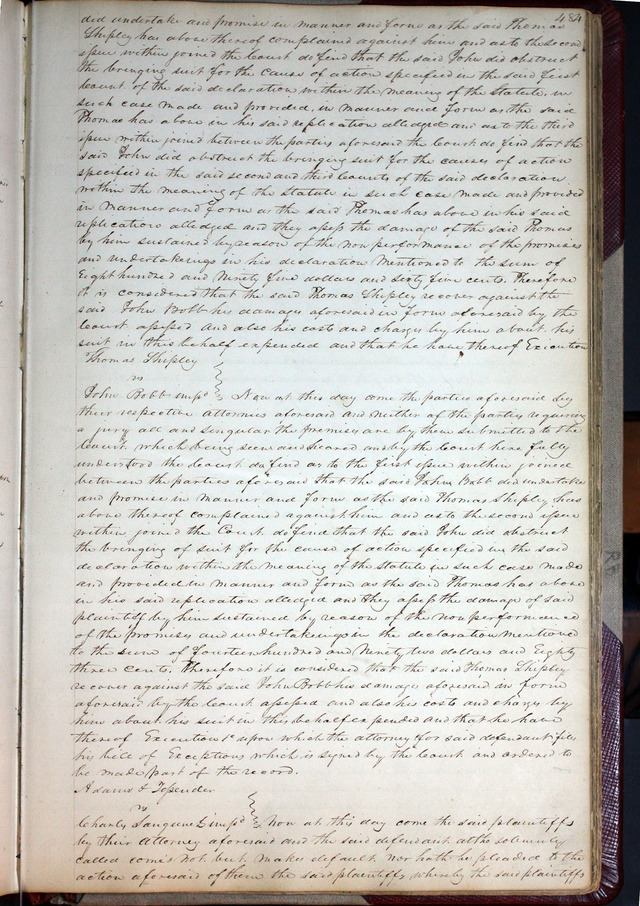 484
did undertake and promise in manner and form as the said Thomas
Shipley has above thereof complained against him and as to the second
issue within joined the Court do find that the said John did obstruct
the bringing suit for the cause of action specified in the said first
Count of the said declaration within the meaning of the Statute in
such case made and provided, in manner and form as the said
Thomas has above in his said replication alledged and as to the third
issue within joined between the parties aforesaid the Court do find that the
said John did obstruct the bringing suit for the causes of action
specified in the said second and third Counts of the said declaration
within the meaning of the Statute in such case made and provided
in Manner and Form as the said Thomas has above in his said
replication alledged and they assess the damage of the said Thomas
by him sustained by reason of the non performance of the promises
and undertakings in his declaration mentioned to the sum of
Eight hundred and Ninety five dollars and sixty five cents. Therefore
it is considered that the said Thomas Shipley recover against the
said John Bobb his damages aforesaid in form aforesaid by the
Court assessed and also his costs and charges by him about his
suit in this behalf expended and that he have thereof Execution
Thomas Shipley
vs
John Bobb impd Now at this day come the parties aforesaid by
their respective attornies aforesaid and neither of the parties requiring
a jury all and singular the premises are by them submitted to the
Court which being seen and heard and by the Court here fully
understood the Court do find as to the first issue within joined
between the parties aforesaid that the said John Bobb did undertake
and promise in manner and form as the said Thomas Shipley has
above thereof complained against him and as to the second issue
within joined the Court do find that the said John did obstruct
the bringing of suit for the cause of action specified in the said
declaration within the meaning of the Statute in such case made
and provided in manner and form as the said Thomas has above
in his said replication alledged and they assess the damage of said
plaintiff by him sustained by reason of the non performance
of the promises and undertakings in the declaration mentioned
to the sum of fourteen hundred and Ninety two dollars and Eighty
three cents. Therefore it is considered that the said Thomas Shipley
recover against the said John Bobb his damages aforesaid in form
aforesaid by the Court assessed and also his costs and charges by
him about his suit in this behalf expended and that he have
thereof Execution &c upon which the attorney for said defendant files
his bill of Exceptions which is signed by the Court and ordered to
be made part of the record.
Adams &
vs
Charles Sanguinet impd Now at this day come the said plaintiffs
by their Attorney aforesaid and the said defendant altho solemnly
called comes not but makes default, nor hath he pleaded to the
action aforesaid of them the said plaintiffs whereby the said plaintiffs